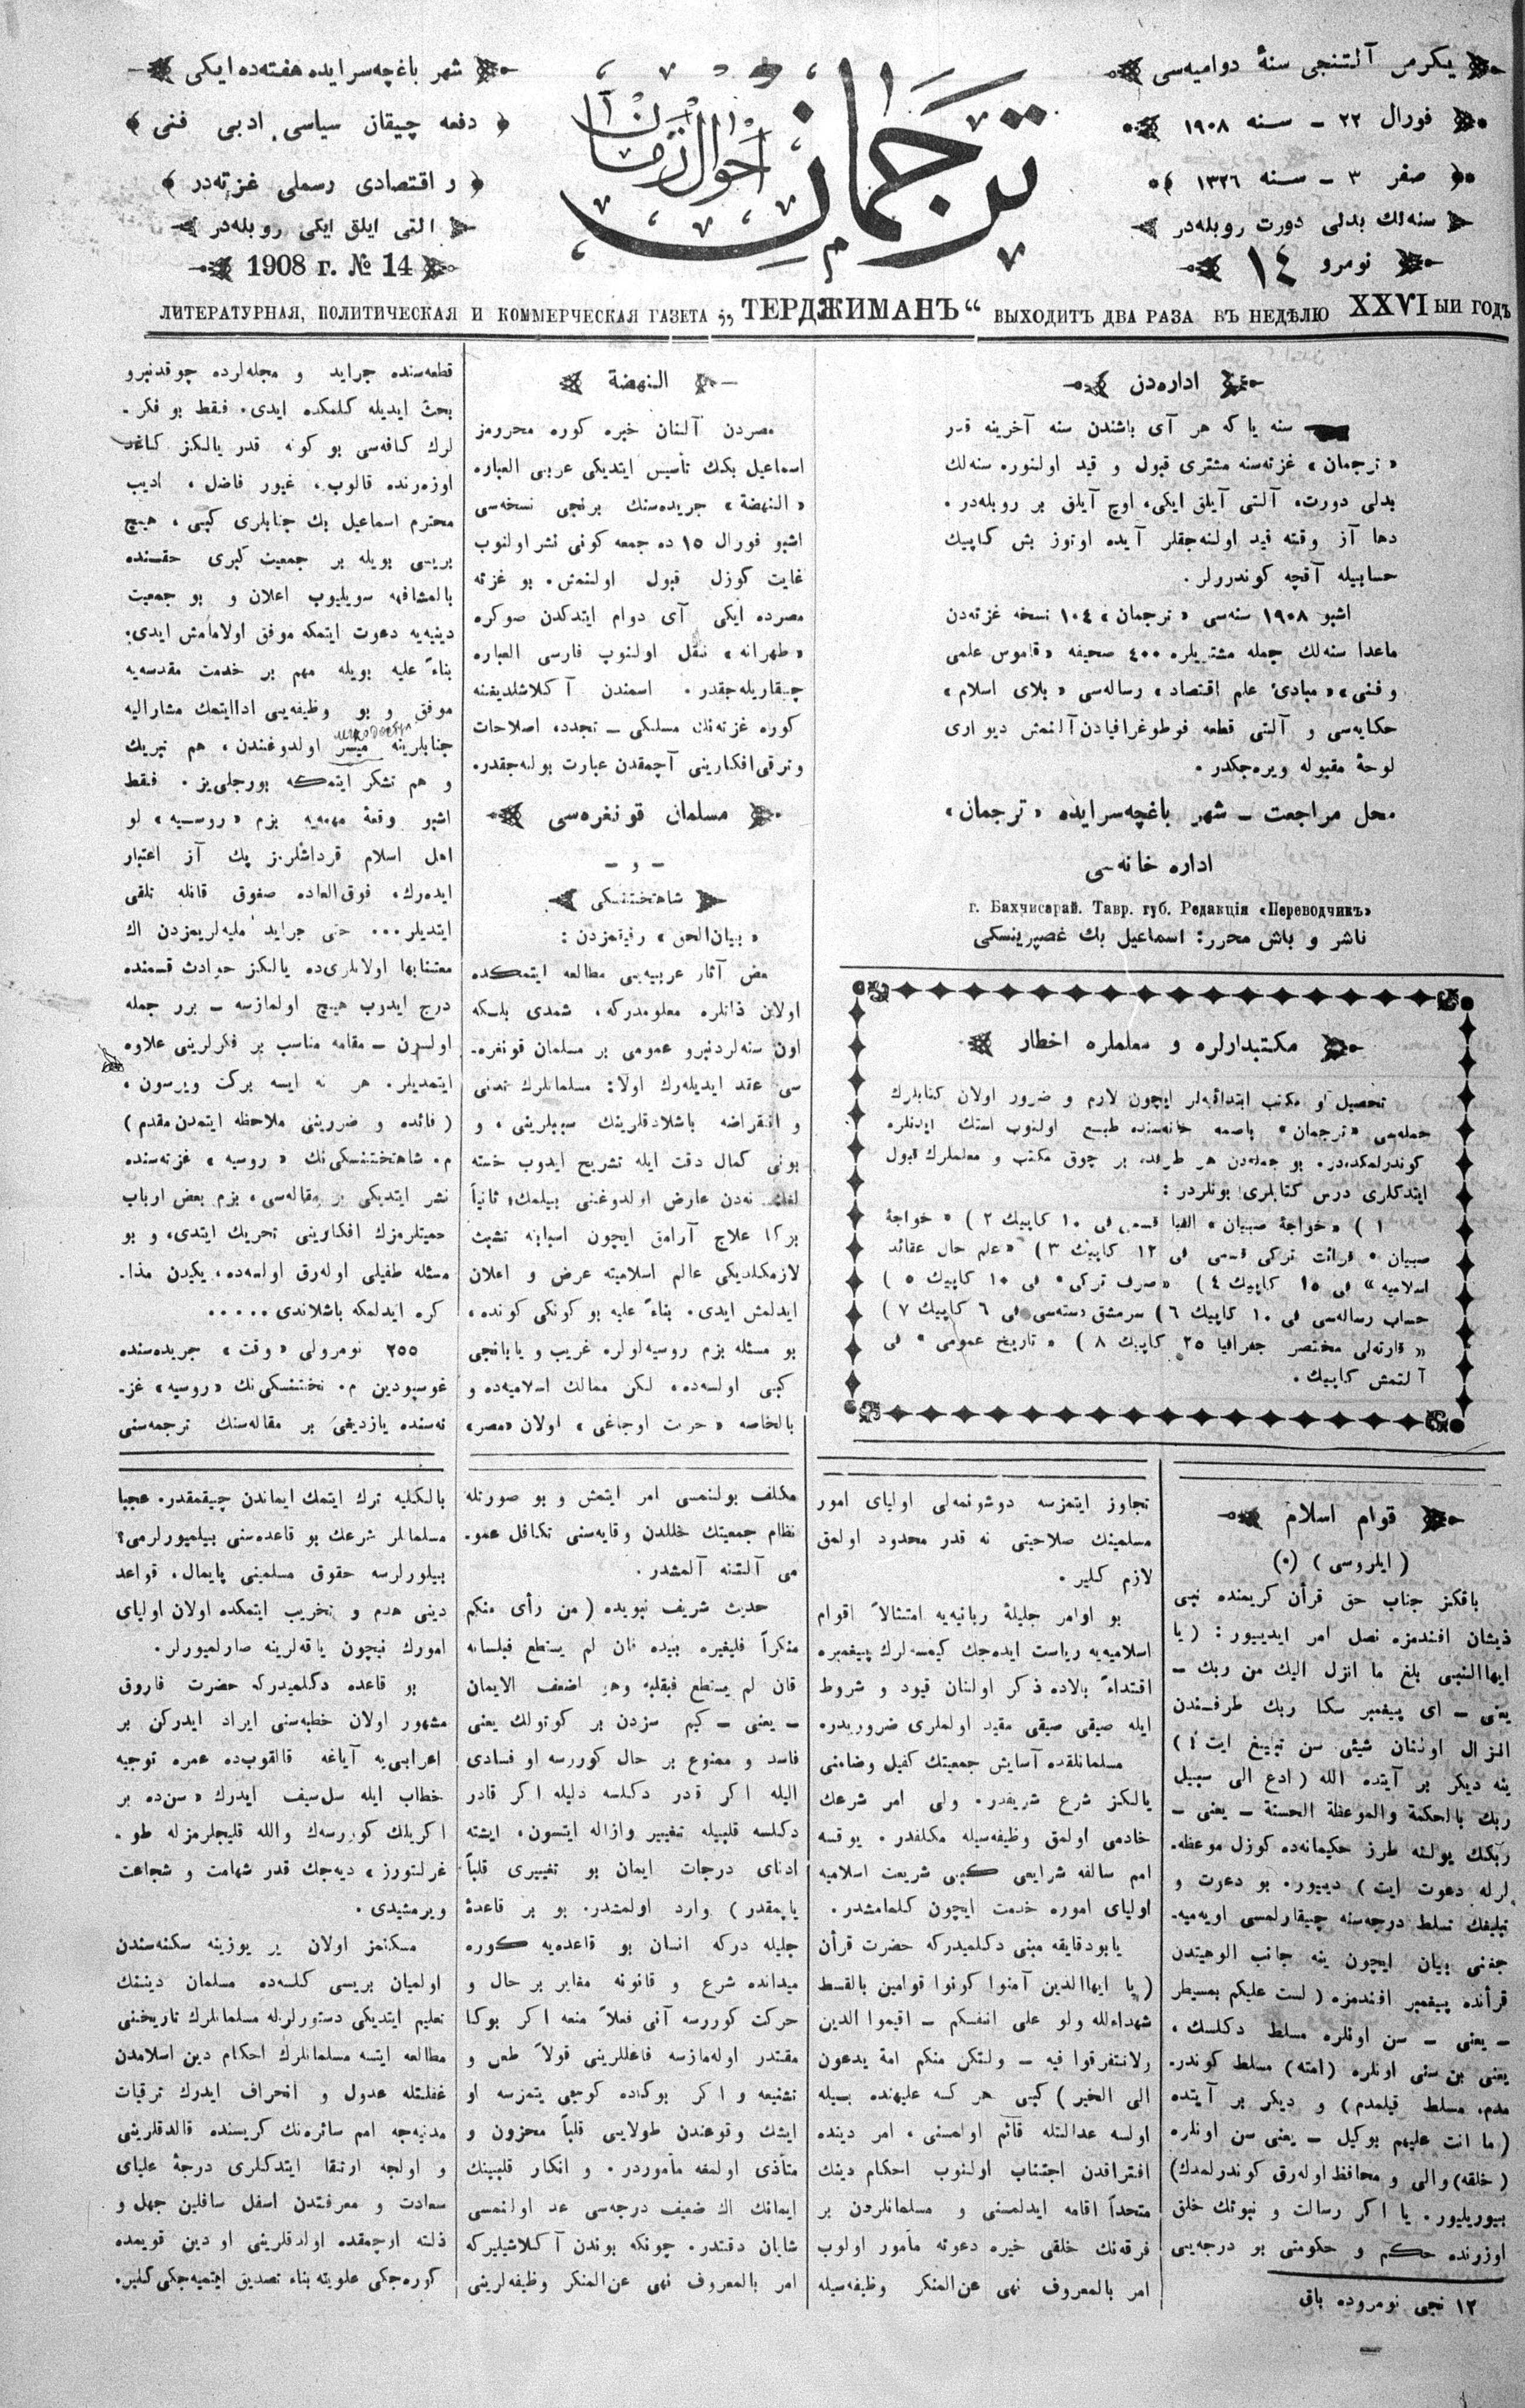 يكرمى آلتنجى سنۀ دواميه‌سى
فورال ٢٢ ـ سنه ١٩٠٨
صفر ٣ ـ سنه ١٣٢٦
سنه‌لك بدلى دورت روبله‌در
نومرو ١٤
ترجمان
احوال زمان
شهر باغچه‌سرايده هفته‌ده ايكى
دفعه چيقان سياسى ادبى فنى
و اقتصادى رسملى غزته‌در
التى ايلق ايكى روبله‌در
1908 г. № 14
ЛИТЕРАТУРНАЯ, ПОЛИТИЧЕСКАЯ И КОММЕРЧЕСКАЯ ГАЗЕТА „ТЕРДЖИМАНЪ“ ВЫХОДИТЪ ДВА РАЗА ВЪ НЕДѢЛЮ XXVI ЫИ ГОДЪ
اداره‌دن
سنه يا كه هر آى باشندن سنه آخرينه قدر
«ترجمان» غزته‌سنه مشترى قبول و قيد اولنوره سنه‌لك
بدلى دورت، آلتى آيلق ايكى، اوچ آيلق بر روبله‌در.
دها آز وقته قيد اولنه‌جقلر آيده اوتوز بش كاپيك
حسابيله آقچه كوندررلر.
اشبو ١٩٠٨ سنه‌سى «ترجمان» ١٠٤ نسخه غزته‌دن
ماعدا سنه‌لك جمله مشتريلره ٤٠٠ صحيفه «قاموس علمى
و فنى» «مبادئ علم اقتصاد» رساله‌سى «بلاى اسلام»
حكايه‌سى و آلتى قطعه فوطوغرافيادن آلنمش ديوارى
لوحۀ مقبوله ويره‌جكدر.
محل مراجعت ـ شهر باغچه‌سرايده «ترجمان»
اداره خانه‌سى
г. Бахчисарай. Тавр. губ. Редакція «Переводчикъ»
ناشر و باش محرر: اسماعيل بك غصپرينسكى
مكتبدارلره و معلملره اخطار
تحصيل و مكتب ابتدائيه‌لر ايچون لازم و ضرور اولان كتابلرك
جمله‌سى «ترجمان» باصمه خانه‌سنده طبع اولنوب استك ايدنلره
كوندرلمكده‌در. بو جمله‌دن هر طرفده بر چوق مكتب و معلملرك قبول
ايتدكلرى درس كتابلرى بونلردر:
١) «خواجۀ صبيان» الفبا قسمى فى ١٠ كاپيك ٢) «خواجۀ
صبيان» قرائت تركى قسمى فى ١٢ كاپيك ٣) «علم حال عقائد
اسلاميه» فى ١٥ كاپيك ٤) «صرف تركى» فى ١٠ كاپيك ٥)
حساب رساله‌سى فى ١٠ كاپيك ٦) سرمشق دسته‌سى فى ٦ كاپيك ٧)
«قارته‌لى مختصر جغرافيا ٢٥ كاپيك ٨) «تاريخ عمومى» فى
آلتمش كاپيك.
النهضة
مصردن آلنان خبره كوره محررمز
اسماعيل بكك تأسيس ايتديكى عربى العباره
«النهضة» جريده‌سنك برنجى نسخه‌سى
اشبو فورال ١٥ ده جمعه كونى نشر اولنوب
غايت كوزل قبول اولنمش. بو غزته
مصرده ايكى آى دوام ايتدكدن صوكره
«طهرانه» نقل اولنوب فارسى العباره
چيقاريله‌جقدر. اسمندن آكلاشلديغنه
كوره غزته‌نك مسلكى ـ تجدد، اصلاحات
وترقى افكارينى آچمقدن عبارت بولنه‌جقدر.
مسلمان قونغره‌سى
ـ و ـ
شاهتختنسكى
«بيان الحق» رفيقمزدن:
بعض آثار عربيه‌يى مطالعه ايتمكده
اولان ذاتلره معلومدركه، شمدى بلكه
اون سنه‌لردنبرو عمومى بر مسلمان قونغره‌ـ
سى عقد ايديله‌رك اولا: مسلمانلرك تدنى
و انقراضه باشلادقلرينك سببلرينى، و
بونى كمال دقت ايله تشريح ايدوب خسته
لغك نه‌دن عارض اولدوغنى بيلمك؛ ثانياً
بركا علاج آرامق ايچون اسبابنه تشبث
لازمكلديكى عالم اسلاميته عرض و اعلان
ايدلمش ايدى. بناءً عليه بو كونكى كونده،
بو مسئله بزم روسيه‌لولره غريب و يابانجى
كبى اولسه‌ده، لكن ممالك اسلاميه‌ده و
بالخاصه «حريت اوجاغى» اولان «مصر»
قطعه‌سنده جرايد و مجله‌لرده چوقدنبرو
بحث ايديله كلمكده ايدى. فقط بو فكرـ
لرك كافه‌سى بو كونه قدر يالكز كاغد
اوزه‌رنده قالوب، غيور فاضل، اديب
محترم اسماعيل بك جنابلرى كبى، هيچ
بريسى بويله بر جمعيت كبرى حقنده
بالمشافهه سويليوب اعلان و بو جمعيت
دينيه‌يه دعوت ايتمكه موفق اولامامش ايدى.
بناءً عليه بويله مهم بر خدمت مقدسه‌يه
موفق و بو وظيفه‌يى اداايتمك مشاراليه
جنابلرينه ميسر اولدوغندن، هم تبريك
و هم تشكر ايتمكه بورجلى‌يز. فقط
اشبو وقعۀ مهمه‌يه بزم «روسيه» لو
اهل اسلام قرداشلرمز پك آز اعتبار
ايده‌رك، فوق‌العاده صغوق قانله تلقى
ايتديلر... حتى جرايد مليه‌لريمزدن اك
معتنابها اولانلرى‌ده يالكز حوادث قسمنده
درج ايدوب هيچ اولمازسه ـ برر جمله
اولسون ـ مقامه مناسب بر فكرلرينى علاوه
ايتمديلر. هر نه ايسه بركت ويرسون،
(فائده و ضررينى ملاحظه ايتمدن مقدم)
م. شاهتختنسكى‌نك «روسيه» غزته‌سنده
نشر ايتديكى بر مقاله‌سى، بزم بعض ارباب
حميتلرمزك افكارينى تحريك ايتدى، و بو
مسئله طفيلى اوله‌رق اولسه‌ده، يكيدن مذاـ
كره ايدلمكه باشلاندى.....
٢٥٥ نومرولى «وقت» جريده‌سنده
غوسپودين م. تختنسكى‌نك «روسيه» غزـ
ته‌سنده يازديغى بر مقاله‌سنك ترجمه‌سنى
قوام اسلام
(ايلروسى) (*)
باقكز جناب حق قرآن كريمنده نبى
ذيشان افندمزه نصل امر ايديبور: (يا
ايهاالنبى بلغ ما انزل اليك من ربك ـ
يعنى ـ اى پيغمبر سكا ربك طرفندن
انزال اولنان شيئى سن تبليغ ايت!)
ينه ديكر بر آيتده الله (ادع الى سبيل
ربك بالحكمة والموعظة الحسنة ـ يعنى ـ
ربكك يولنه طرز حكيمانه‌ده كوزل موعظه‌ـ
لرله دعوت ايت) ديبور. بو دعوت و
تبليغك تسلط درجه‌سنه چيقارلمسى اويه‌ميه‌ـ
جغنى بيان ايچون ينه جانب الوهيتدن
قرآنده پيغمبر افندمزه (لست عليكم بمسيطر
ـ يعنى ـ سن اونلره مسلط دكلسك،
يعنى بن سنى اونلره (امته) مسلط كوندرـ
مدم، مسلط قيلمدم) و ديكر بر آيتده
(ما انت عليهم بوكيل ـ يعنى سن اونلره
(خلقه) والى و محافظ اوله‌رق كوندرلمدك)
بيوريليور. يا اكر رسالت و نبوتك خلق
اوزرنده حكم و حكومتى بو درجه‌يى
١٢ نجى نومروده باق
تجاوز ايتمزسه دوشونمه‌لى اولياى امور
مسلمينك صلاحيتى نه قدر محدود اولمق
لازم كلير.
بو اوامر جليلۀ ربانيه‌يه امتثالاً اقوام
اسلاميه‌يه رياست ايده‌جك كيمسه‌لرك پيغمبره
اقتداءً بالاده ذكر اولنان قيود و شروط
ايله صيقى صيقى مقيد اولملرى ضروريدر.
مسلمانلقده آسايش جمعيتك كفيل وضامنى
يالكز شرع شريفدر. ولى امر شرعك
خادمى اولمق وظيفه‌سيله مكلفدر. يوقسه
امم سالفه شرايعى كبى شريعت اسلاميه
اولياى اموره خدمت ايچون كلمامشدر.
يابودقايقه مبنى دكلميدركه حضرت قرآن
(يا ايهاالذين آمنوا كونوا قوامين بالقسط
شهداءلله ولو على انفسكم ـ اقيموا الدين
ولاتتفرقوا فيه ـ ولتكن منكم امة يدعون
الى الخير) كبى هر كسه عليهنده بيله
اولسه عدالتله قائم اولمسنى، امر دينده
افتراقدن اجتناب اولنوب احكام دينك
متحداً اقامه ايدلمسنى و مسلمانلردن بر
فرقه‌نك خلقى خيره دعوته مأمور اولوب
امر بالمعروف نهى عن‌المنكر وظيفه‌سيله
مكلف بولنمسى امر ايتمش و بو صورتله
نظام جمعيتك خللدن وقايه‌سنى تكافل عموـ
مى آلتنه آلمشدر.
حديث شريف نبويده (من رأى منكم
منكراً فليغيره بيده فان لم يستطع فبلسانه
فان لم يستطع فبقلبه وهو اضعف الايمان
ـ يعنى ـ كيم سزدن بر كوتولك يعنى
فاسد و ممنوع بر حال كوررسه او فسادى
اليله اكر قدر دكلسه ديليله اكر قادر
دكلسه قلبيله تغيير وازاله ايتسون، ايشته
ادناى درجات ايمان بو تغييرى قلباً
ياپمقدر) وارد اولمشدر. بو بر قاعدۀ
جليله دركه انسان بو قاعده‌يه كوره
ميدانده شرع و قانونه مغاير بر حال و
حركت كوررسه آنى فعلاً منعه اكر بوكا
مقتدر اوله‌مازسه فاعللرينى قولاً طعن و
تشنيعه و اكر بوكاده كوجى يتمزسه او
ايشك وقوعندن طولايى قلباً محزون و
متأذى اولمغه مأموردر. و انكار قلبينك
ايمانك اك ضعيف درجه‌سى عد اولنمسى
شايان دقتدر. چونكه بوندن آكلاشيليركه
امر بالمعروف نهى عن‌المنكر وظيفه‌لرينى
بالكليه ترك ايتمك ايماندن چيقمقدر. عجبا
مسلمانلر شرعك بو قاعده‌سنى بيلميورلرمى؟
بيلورلرسه حقوق مسلمينى پايمال، قواعد
دينى هدم و تخريب ايتمكده اولان اولياى
امورك نيچون ياقه‌لرينه صارلميورلر.
بو قاعده دكلميدركه حضرت فاروق
مشهور اولان خطبه‌سنى ايراد ايدركن بر
اعرابى‌يه آياغه قالقوب‌ده عمره توجيه
خطاب ايله سل‌سيف ايدرك «سن‌ده بر
اكريلك كوررسه‌ك والله قليجلرمزله طوـ
غرلتورز» ديه‌جك قدر شهامت و شجاعت
ويرمشيدى.
مسكنمز اولان ير يوزينه سكنه‌سندن
اولميان بريسى كلسه‌ده مسلمان دينينك
تعليم ايتديكى دستورلرله مسلمانلرك تاريخنى
مطالعه ايتسه مسلمانلرك احكام دين اسلامدن
غفلتله عدول و انحراف ايدرك ترقيات
مدنيه‌جه امم سائره‌نك كريسنده قالدقلرينى
و اولجه ارتقا ايتدكلرى درجۀ علياى
سعادت و معرفتدن اسفل سافلين جهل و
ذلته ارچمقده اولدقلرينى او دين قويمده
كوره‌جكى علويته بناء تصديق ايتميه‌جكى كلير.